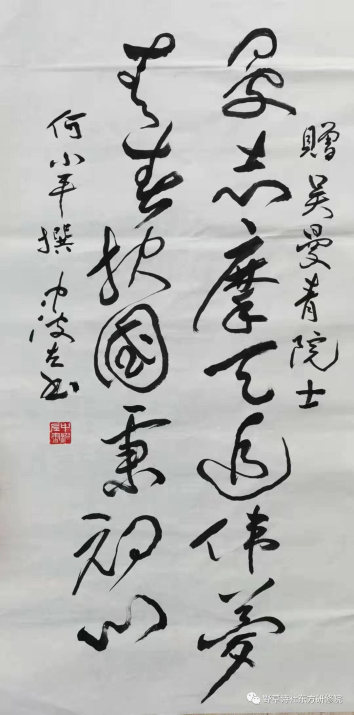 赠吴曼青院士
曼志摩天追伟梦
青春报国秉初心
何小平撰 波左书
野草诗社东方研修院